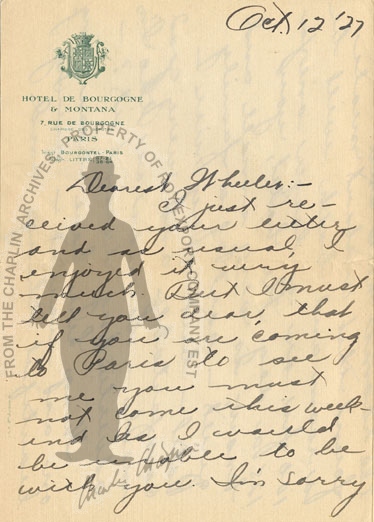 Oct. 12 '27
HOTEL DE BOURGOGNE
& MONTANA
7, RUE DE BOURGOGNE
PARIS
BOURGONTEL-PARIS
LITTRÉ
Dearest Wheeler:-
I just re-
ceived your letter
and as usual, I
enjoyed it very
much. But I must
tell you dear, that
if you are coming
to Paris to see
me you must
not come this week-
end as I would
be unable to be
with you. I'm sorry
FROM THE CHARLIN ARCHIVES, PROPERTY OF ROY EXPORT COMPANY EST
Charlie Chaplin